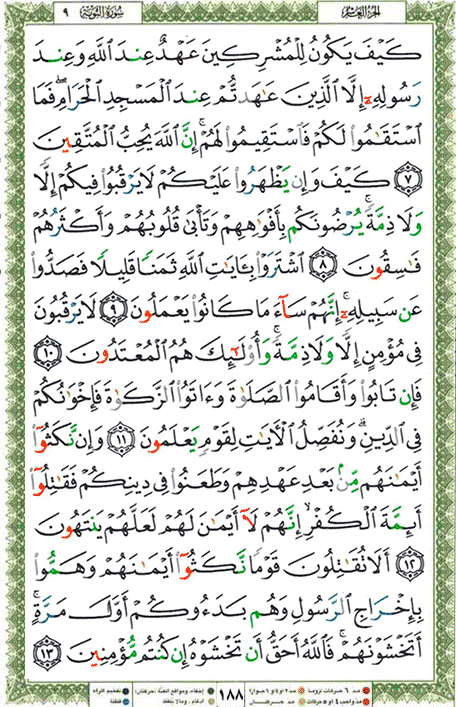 الجزء العاشر سورة التوبة ٩
كَيْفَ يَكُونُ لِلْمُشْرِكِينَ عَهْدٌ عِندَ ٱللَّهِ وَعِندَ
رَسُولِهِۦٓ إِلَّا ٱلَّذِينَ عَٰهَدتُّمْ عِندَ ٱلْمَسْجِدِ ٱلْحَرَامِ ۖ فَمَا
ٱسْتَقَٰمُوا۟ لَكُمْ فَٱسْتَقِيمُوا۟ لَهُمْ ۚ إِنَّ ٱللَّهَ يُحِبُّ ٱلْمُتَّقِينَ
٧ كَيْفَ وَإِن يَظْهَرُوا۟ عَلَيْكُمْ لَا يَرْقُبُوا۟ فِيكُمْ إِلًّا
وَلَا ذِمَّةً ۚ يُرْضُونَكُم بِأَفْوَٰهِهِمْ وَتَأْبَىٰ قُلُوبُهُمْ وَأَكْثَرُهُمْ
فَٰسِقُونَ ٨ ٱشْتَرَوْا۟ بِـَٔايَٰتِ ٱللَّهِ ثَمَنًا قَلِيلًا فَصَدُّوا۟
عَن سَبِيلِهِۦٓ ۚ إِنَّهُمْ سَآءَ مَا كَانُوا۟ يَعْمَلُونَ ٩ لَا يَرْقُبُونَ
فِى مُؤْمِنٍ إِلًّا وَلَا ذِمَّةً ۚ وَأُو۟لَٰٓئِكَ هُمُ ٱلْمُعْتَدُونَ ١٠
فَإِن تَابُوا۟ وَأَقَامُوا۟ ٱلصَّلَوٰةَ وَءَاتَوُا۟ ٱلزَّكَوٰةَ فَإِخْوَٰنُكُمْ
فِى ٱلدِّينِ ۗ وَنُفَصِّلُ ٱلْءَايَٰتِ لِقَوْمٍ يَعْلَمُونَ ١١ وَإِن نَّكَثُوٓا۟
أَيْمَٰنَهُم مِّنۢ بَعْدِ عَهْدِهِمْ وَطَعَنُوا۟ فِى دِينِكُمْ فَقَٰتِلُوٓا۟
أَئِمَّةَ ٱلْكُفْرِ ۙ إِنَّهُمْ لَآ أَيْمَٰنَ لَهُمْ لَعَلَّهُمْ يَنتَهُونَ
١٢ أَلَا تُقَٰتِلُونَ قَوْمًا نَّكَثُوٓا۟ أَيْمَٰنَهُمْ وَهَمُّوا۟
بِإِخْرَاجِ ٱلرَّسُولِ وَهُم بَدَءُوكُمْ أَوَّلَ مَرَّةٍ ۚ
أَتَخْشَوْنَهُمْ ۚ فَٱللَّهُ أَحَقُّ أَن تَخْشَوْهُ إِن كُنتُم مُّؤْمِنِينَ ١٣
١٨٨